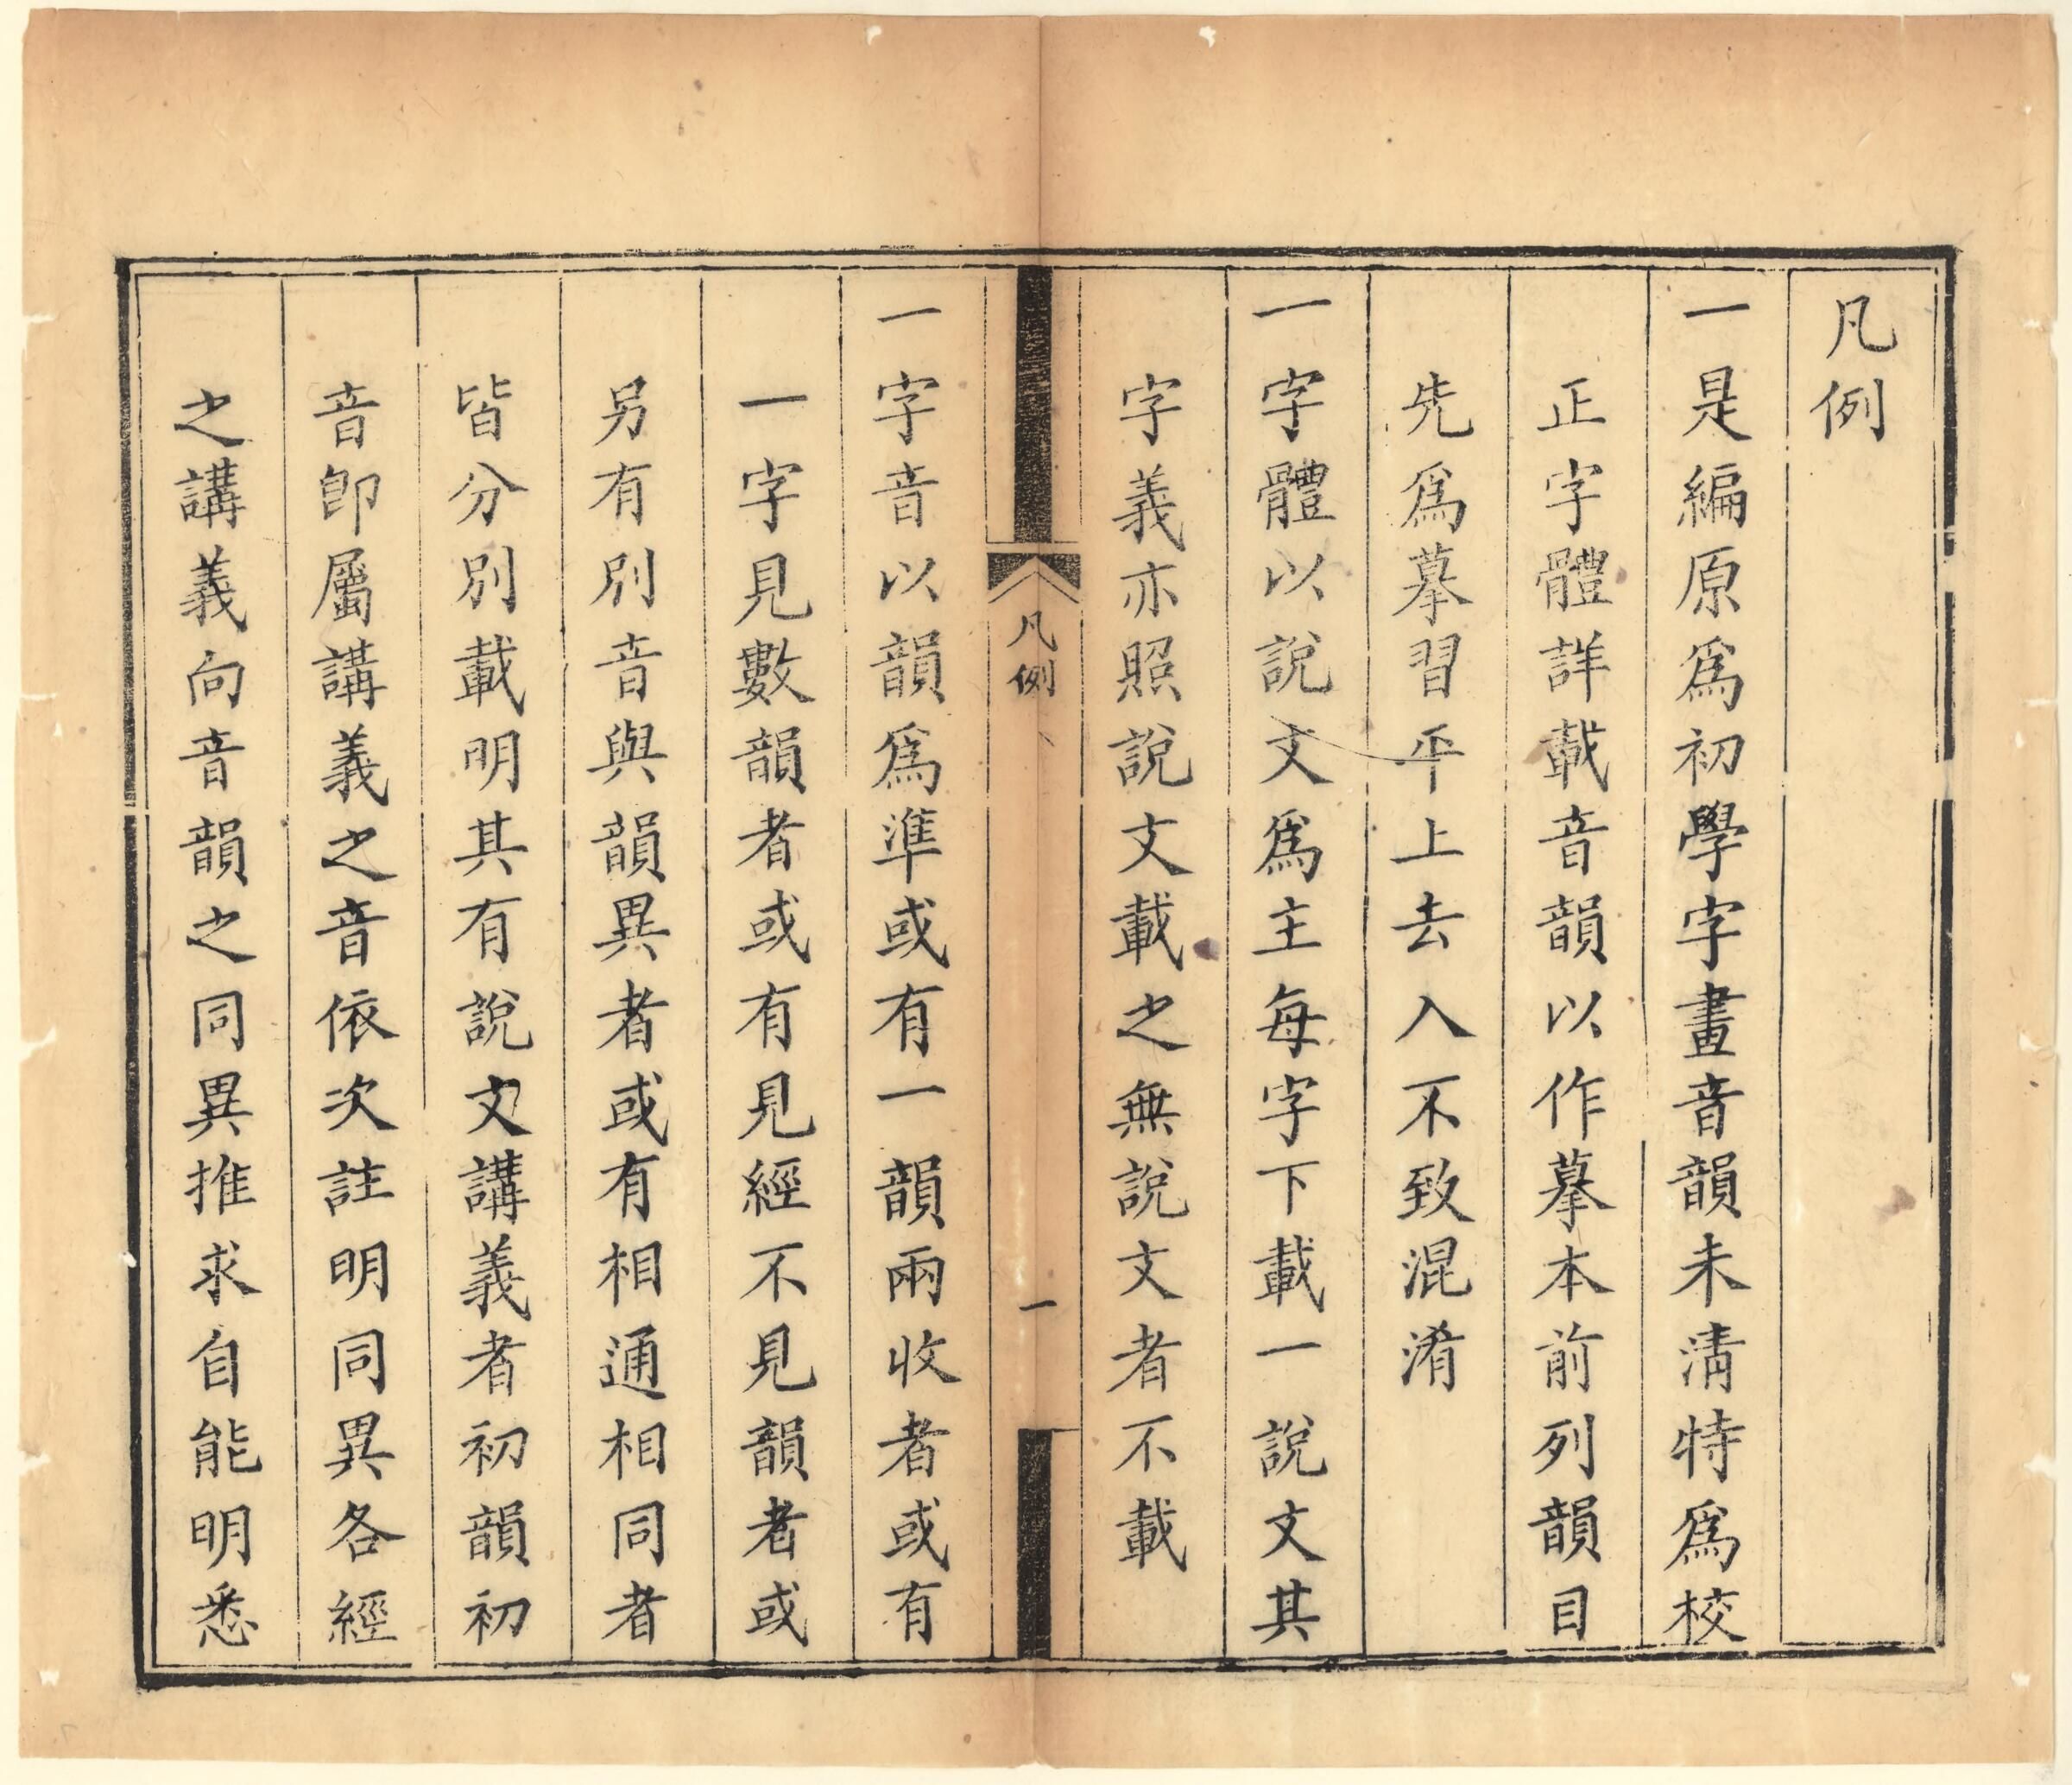 凡例
一是編原爲初學字畫音韻未淸特爲校
正字體詳載音韻以作摹本前列韻目
先爲摹習平上去入不致混淆
一字體以說文爲主每字下載一說文其
字義亦照說文載之無說文者不載
凡例
一
一字音以韻爲準或有一韻兩收者或有
一字見數韻者或有見經不見韻者或
另有別音與韻異者或有相通相同者
皆分別載明其有說文講義者初韻初
音卽屬講義之音依次註明同異各經
之講義向音韻之同異推求自能明悉